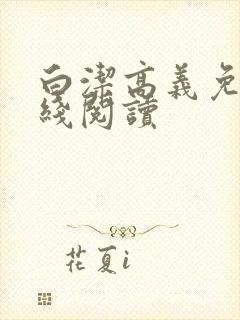 白潔高義免
綫閱讀
花夏i